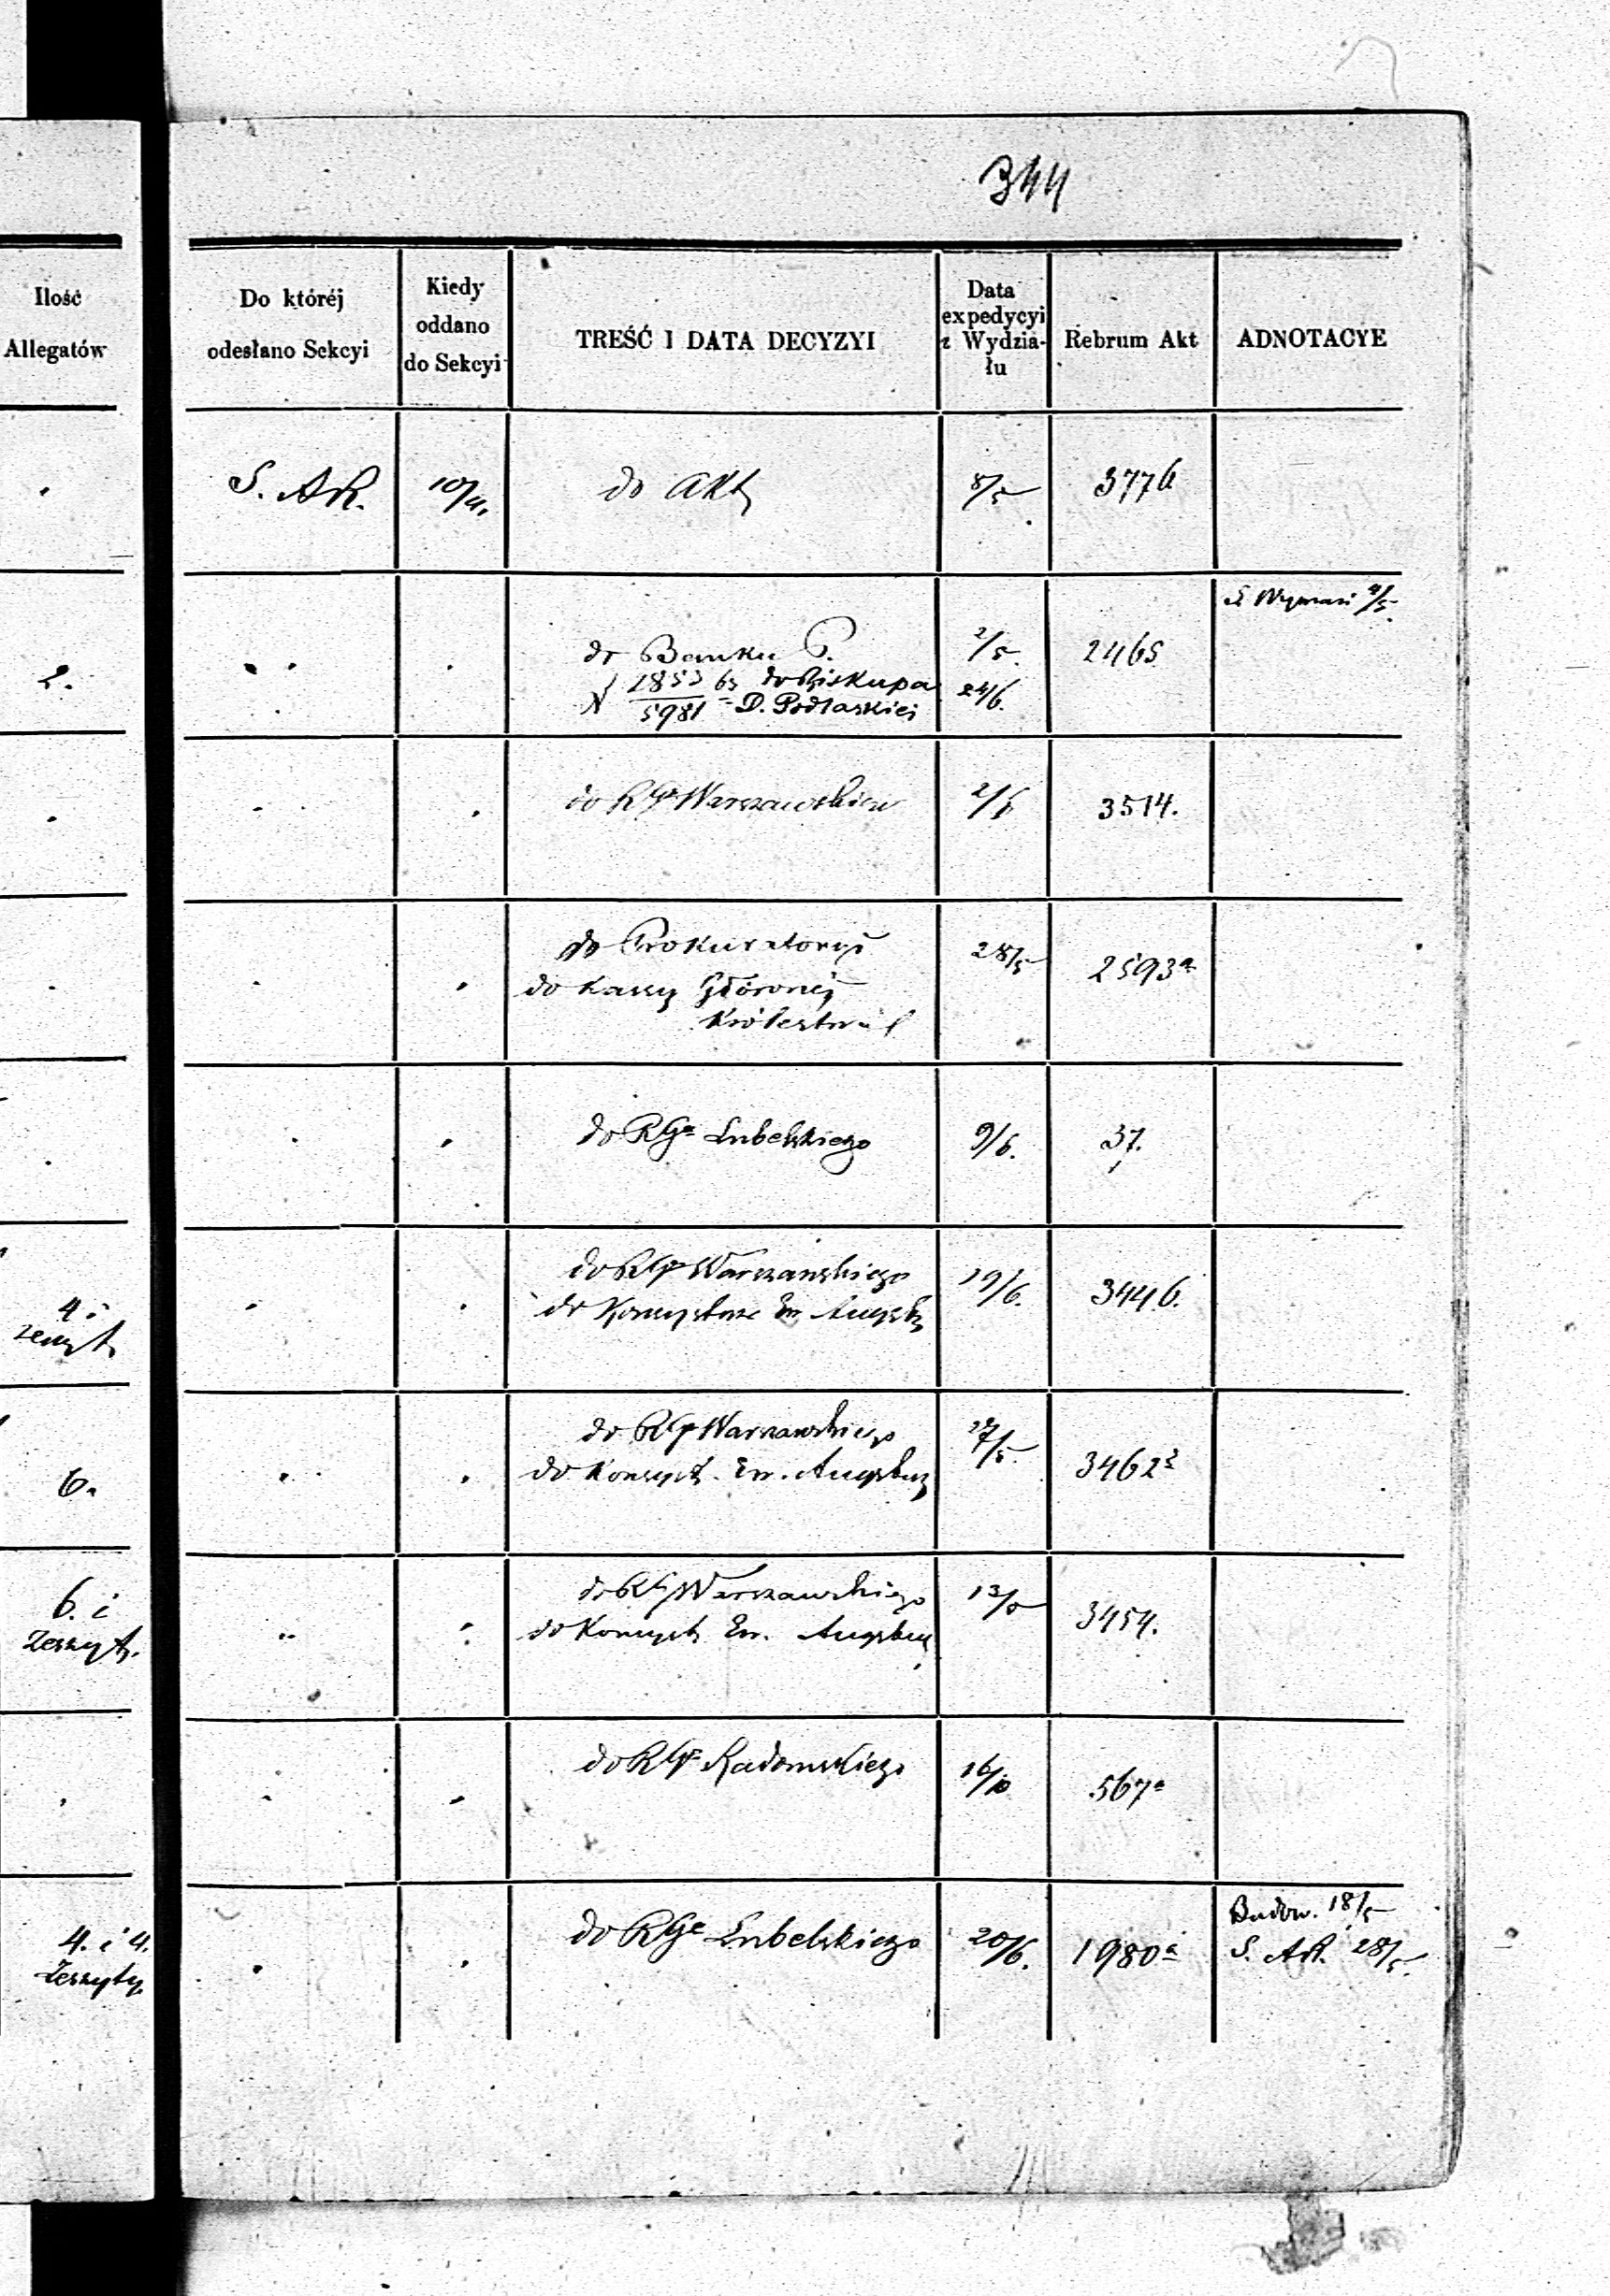 344
Ilość
Allegatów
Do któréj
odesłano Sekcyi
Kiedy
oddano
do Sekcyi
TREŚĆ I DATA DECYZYI
Data
expedycyi
z Wydzia-
łu
Rebrum Akt
ADNOTACYE
S. AR. 10/4. do Akt 8/5 3776
4/5
2. do Banku P. 2/5. 2465
№ 2853/5981 63 do Biskupa 24/6.
D. Podlaskiej
do RGo Warszawskiego 3514.
do Prokuratoryi 28/5 2593a
do Kassy Głównéj
Królestwa
do RGo Lubelskiego 9/6. 37.
4 i
zeszyt
do RGo Warszawskiego 19/6. 3446.
do Konsystorza Ew. Augsb
6. do RGo Warszawskiego 27/5. 3462
do Konsyst. Ew. Augsburg
6. i
Zeszyt.
do RGo Warszawskiego 3454.
do Konsyst Ew. Augsburg
do RGo Radomskiego 16/10 567a
4. i 4.
Zeszyty
do RGo Lubelskiego 20/6. 1980a
Budow. 18/5
S. AR. 28/5.